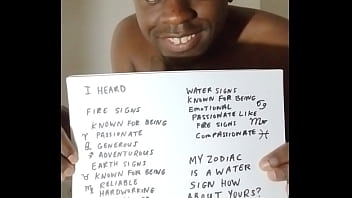 I HEARD
FIRE SIGNS
KNOWN FOR BEING
♈ PASSIONATE
♌ GENEROUS
♐ ADVENTUROUS
EARTH SIGNS
♉ KNOWN FOR BEING
♍ RELIABLE
HARDWORKING
WATER SIGNS
KNOWN FOR BEING
EMOTIONAL ♋
PASSIONATE LIKE
FIRE SIGNS ♏
COMPASSIONATE ♓
MY ZODIAC
IS A WATER
SIGN HOW
ABOUT YOURS?